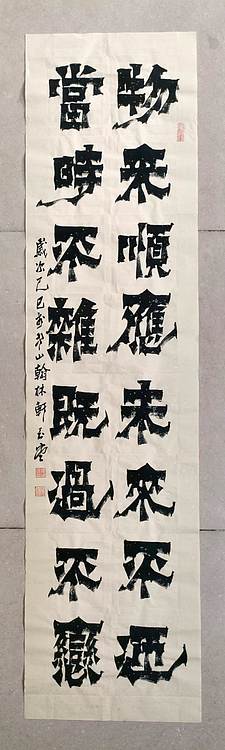 物来順應未來不迎
當時不雜既過不戀
歲次乙巳山翰林軒